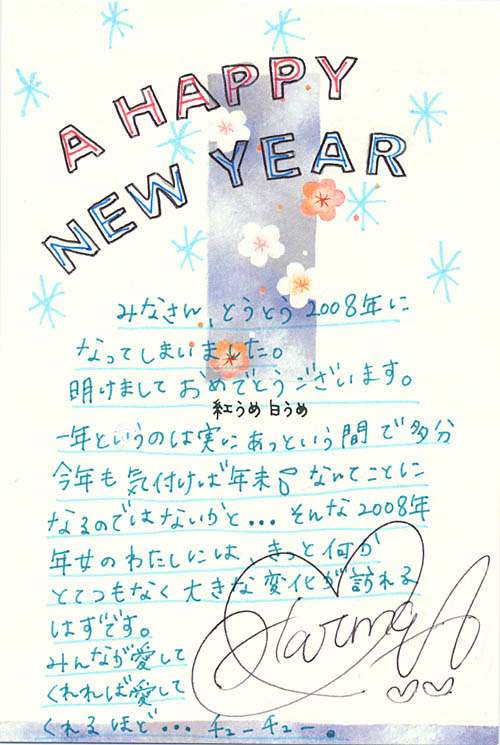 A HAPPY
NEW YEAR
みなさん、とうとう2008年に
なってしまいました。
明けましておめでとうございます。
紅うめ 白うめ
一年というのは実にあっという間で多分
今年も気付けば年末♪なんてことに
なるのではないかと...そんな2008年
年女のわたしには、きっと何か
とてつもなく大きな変化が訪れる
はずです。
みんなが愛して
くれれば愛して
くれるほど...チューチュー。